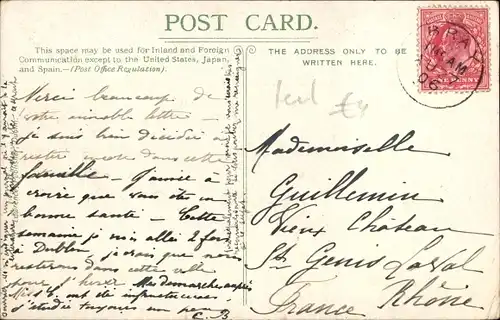 POST CARD.
This space may be used for Inland and Foreign
Communication except to the United States, Japan,
and Spain.—(Post Office Regulation).
THE ADDRESS ONLY TO BE
WRITTEN HERE.
BRAY
AM
06
ONE PENNY
£4
Merci beaucoup de
votre aimable lettre —
je suis bien décidée à
rester encore dans cette
famille — J'aime à
croire que vous êtes en
bonne santé — Cette
semaine je suis allée 2 fois
à Dublin je crois que nous
resterons dans cette ville
pour l'hiver Mes démarches auprès
ont été infructueuses
j'étudie toujours un peu
C. B
Mademoiselle
Guillemin
Vieux Château
St Genis Laval
Rhône
France